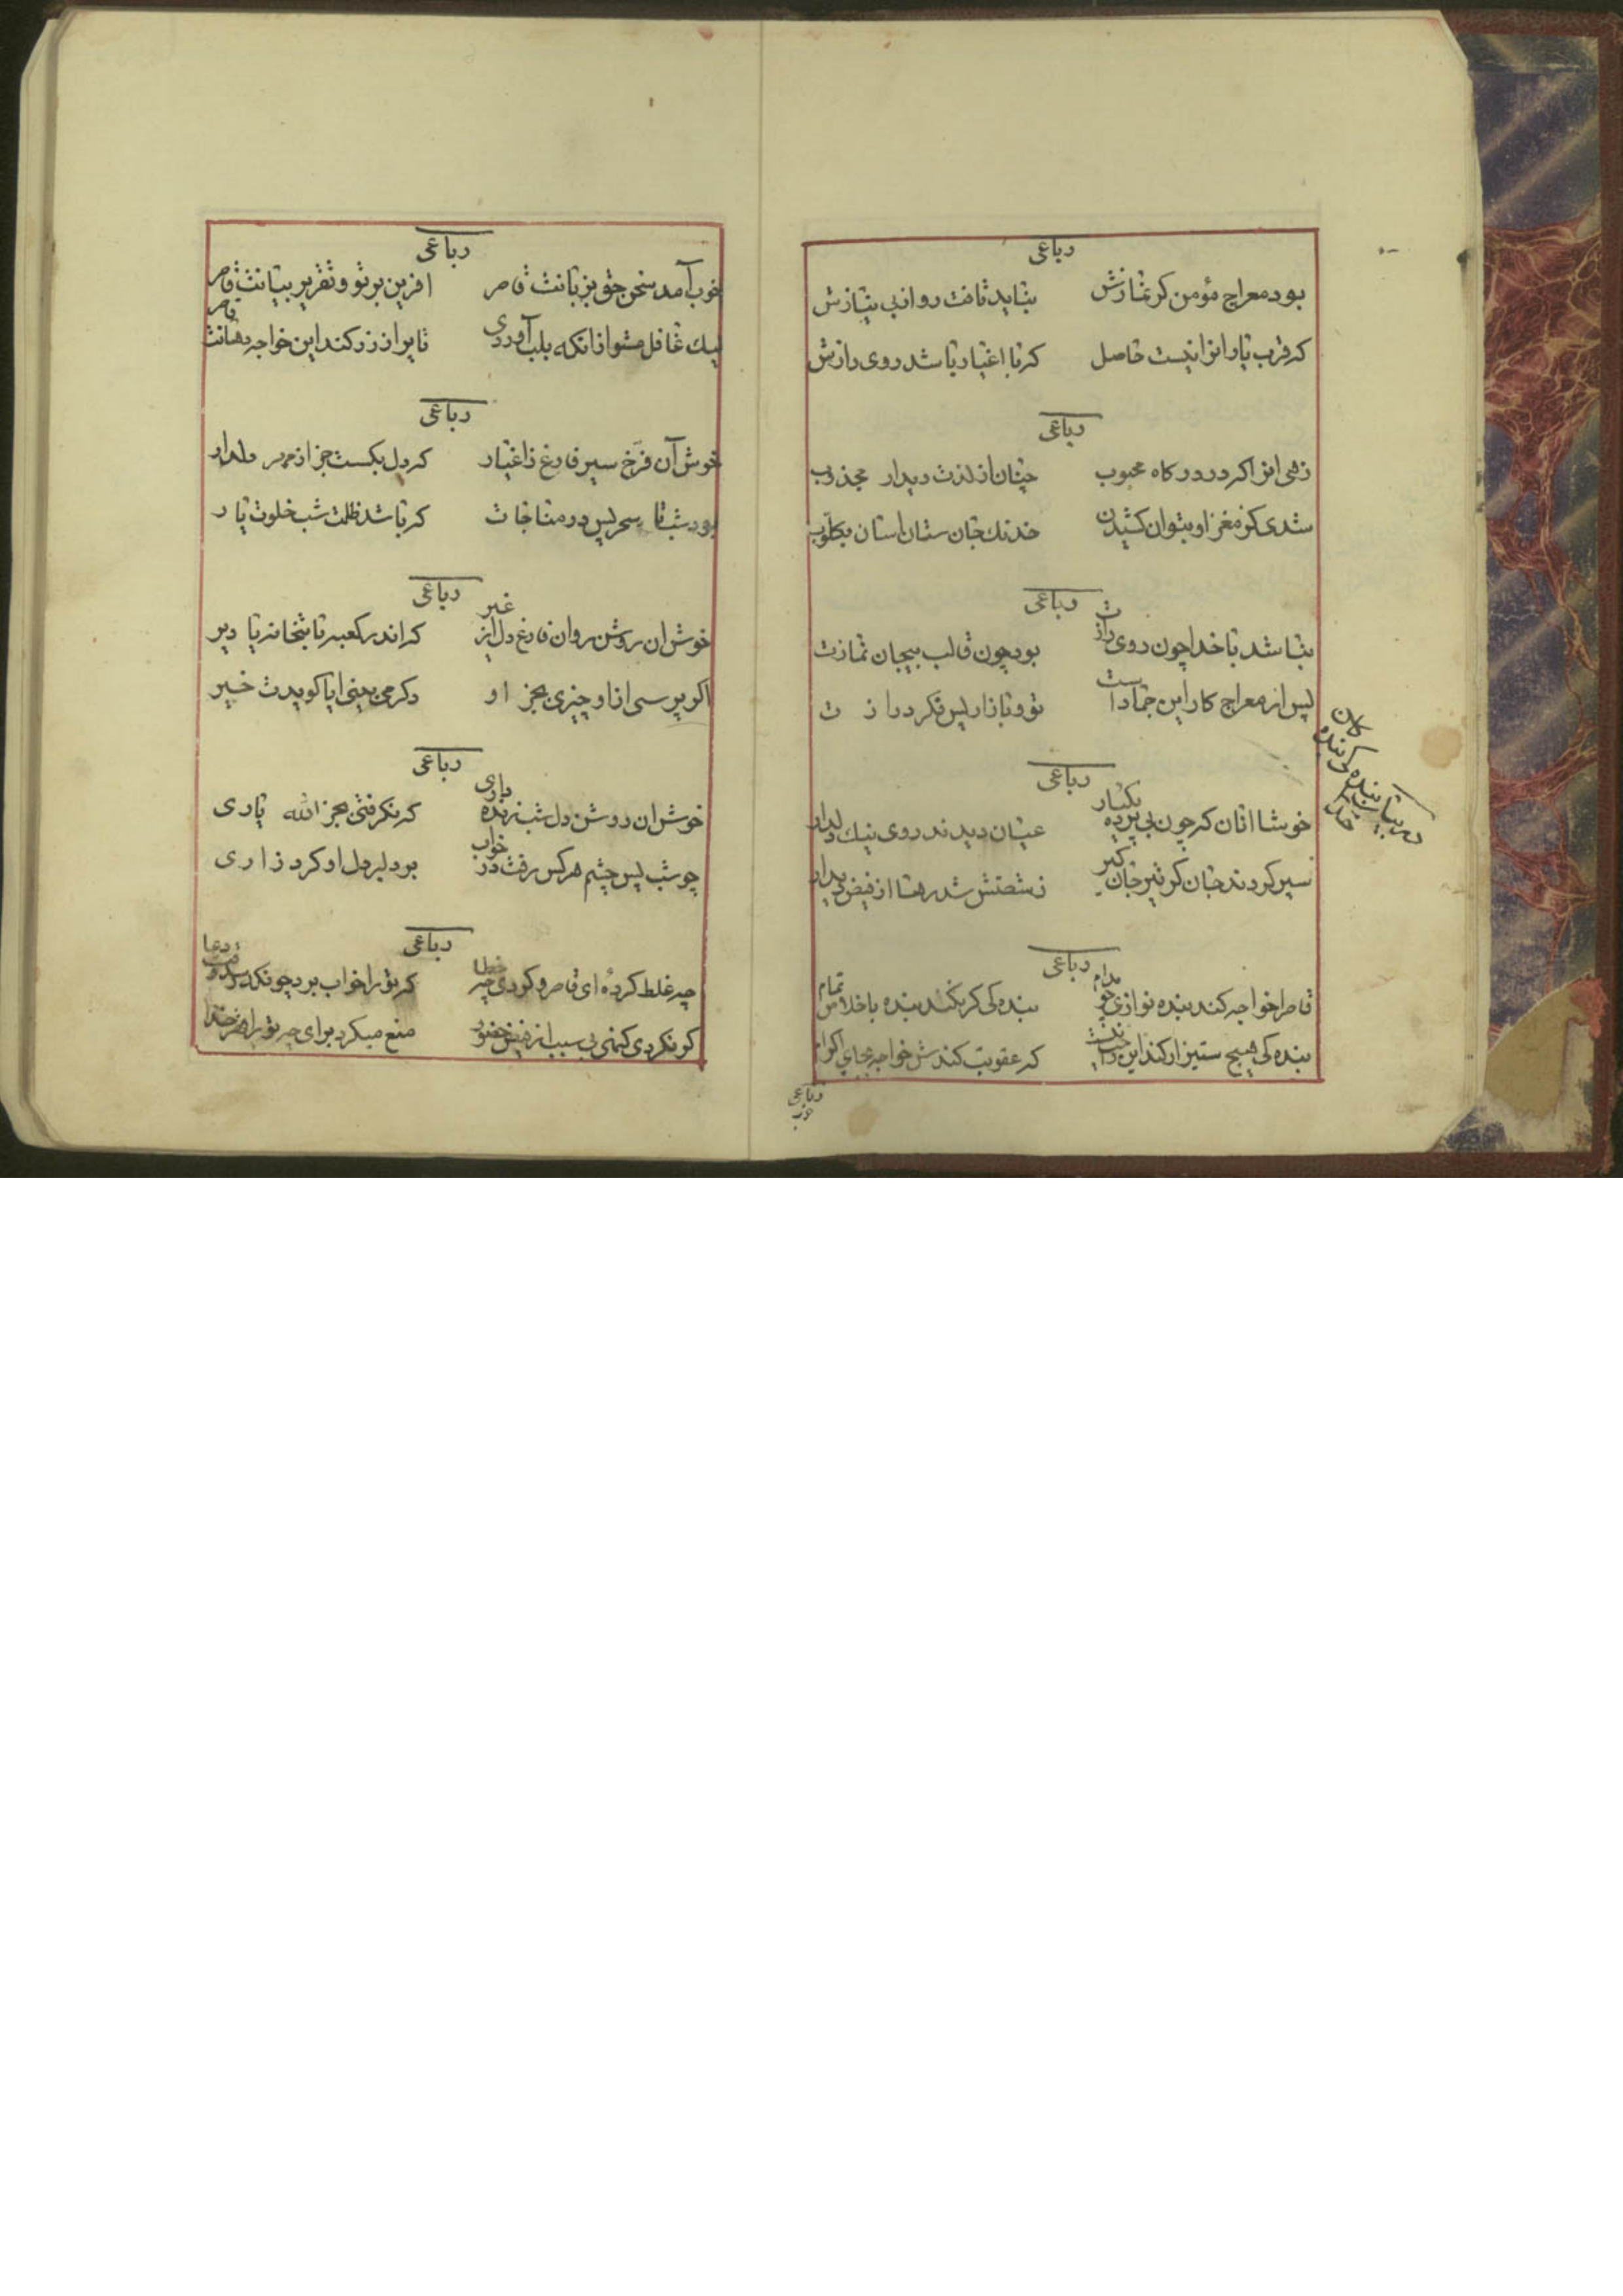 رباعی
بود معراج مؤمن کر نمازش نشاید تافت رو از بی نیازش
که قرب یار انرا نیست حاصل کر با اغیار باشد روی رازش
رباعی
زهی انرا که در درکاه محبوب چنان از لذت دیدار مجذوب
شدی کز مغز او بتوان کشیدن خدنك جان ستان اسان
رباعی
نباشد با خدا چون روی رازت بود چون قالب بیجان نمازت
پس از معراج کار این جمادات تو و بازار پس فکر درازت
رباعی
خوشا انان که چون بی پرده یکبار عیان دیدند روی نیك دلدار
سپر کردند جان کر تیر جان کیر ز شصتش شد رها از فیض دیدار
رباعی
قاصرا خواجه کند بنده نوازی چو مدام بنده کی کر بکند بنده باخلاص تمام
بنده کی هیچ ستیز ار کند این که عقوبت کندش خواجه بجای اکرام
بنده کی بنده کان
خدا
رباعی
رباعی
خوب آمد سخن حق بزبانت قاصر افرین بر تو و تقریر بیانت قاصر
لیك غافل مشو از انکه بلب آوردی تا پر از زر کند این خواجه دهانت قاصر
رباعی
خوش آن فرخ سیر فارغ ز اغیار که دل بکست جز از مهر دلدار
بود شب تا سحر پس در مناجات که باشد ظلمت شب خلوت یار
رباعی
خوش ان روشن روان فارغ دل از غیر که اندر کعبه یا بتخانه یا دیر
اکر پرسی از او چیزی بجز او دکر می بینی ایا کویدت خیر
رباعی
خوش ان روشن دل شب زنده داری که نکرفتی بجز الله یاری
چو شب پس چشم هر کس رفت در خواب بود لبر دل او کرد زاری
رباعی
چه غلط کردهٔ ای قاصر و کردی چه خطا که تو را خواب برد چونکه رسد وقت دعا
کر نکردی کنهی بی سبب از فیض حضور منع میکرد برای چه تو را خدا